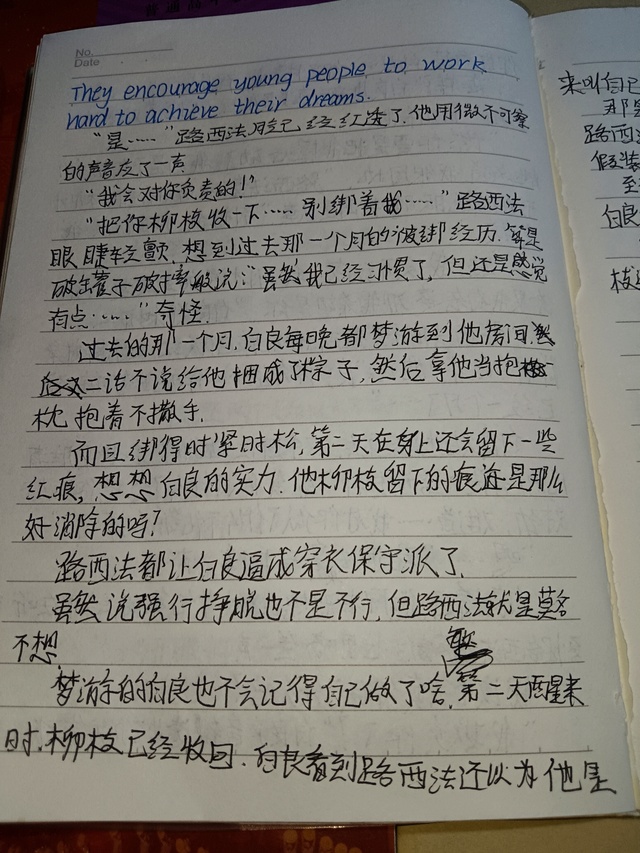 No.
Date
They encourage young people to work
hard to achieve their dreams.
“是……”路西法已经红透了,他用微不可察
的声音应了一声
“我会对你负责的!”
“把你柳枝收一下……别绑着我……”路西法
眼睫轻颤,想到过去那一个月的被绑经历,算是
破罐子破摔般说:“虽然我已经习惯了,但还是感觉
有点……”奇怪.
过去的那一个月,白良每晚都梦游到他房间,
二话不说给他捆成了粽子,然后拿他当抱
枕抱着不撒手.
而且绑得时紧时松,第二天在身上还会留下一些
红痕,想想白良的实力,他柳枝留下的痕迹是那么
好消除的吗?
路西法都让白良逼成穿衣保守派了.
虽然说强行挣脱也不是不行,但路西法就是莫名
不想.
梦游的白良也不会记得自己做了啥,第二天醒来
时,柳枝已经收回,白良看到路西法还以为他是
来叫自己
那
路西法
假装
至
白良
枝